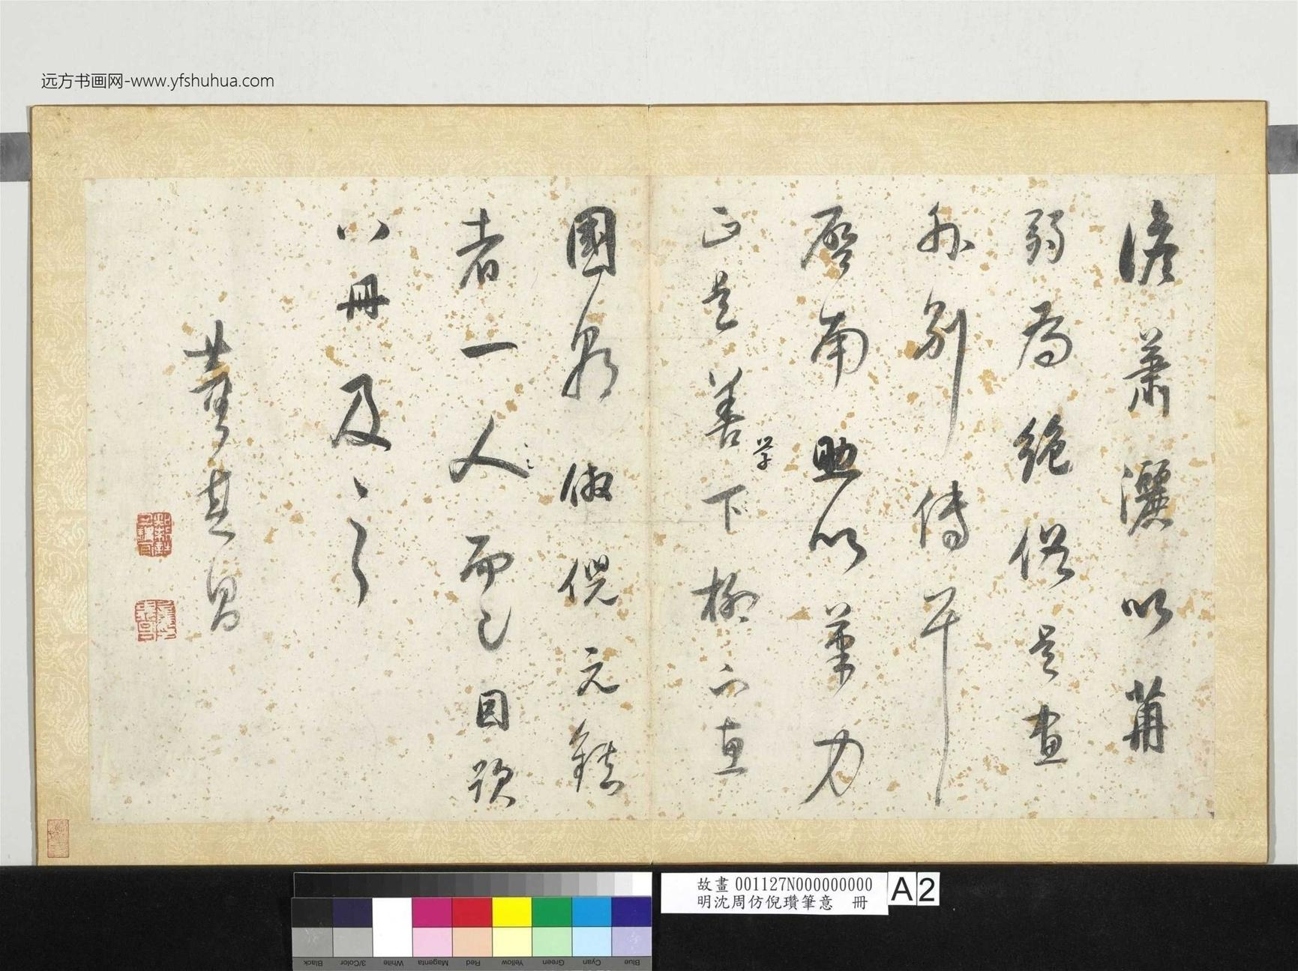 远方书画网-www.yfshuhua.com
澹蕭灑以蕭
弱为絕俗是畫
外别傳耳
啓南助以筆力
正是善學下柳下惠
國朝倣倪元鎮
者一人而已因歎
此冊及之
董其昌
故畫 001127N000000000
明沈周仿倪瓚筆意 冊
A2
Black
3/Color
White
Magenta
Red
Yellow
Green
Cyan
Blue